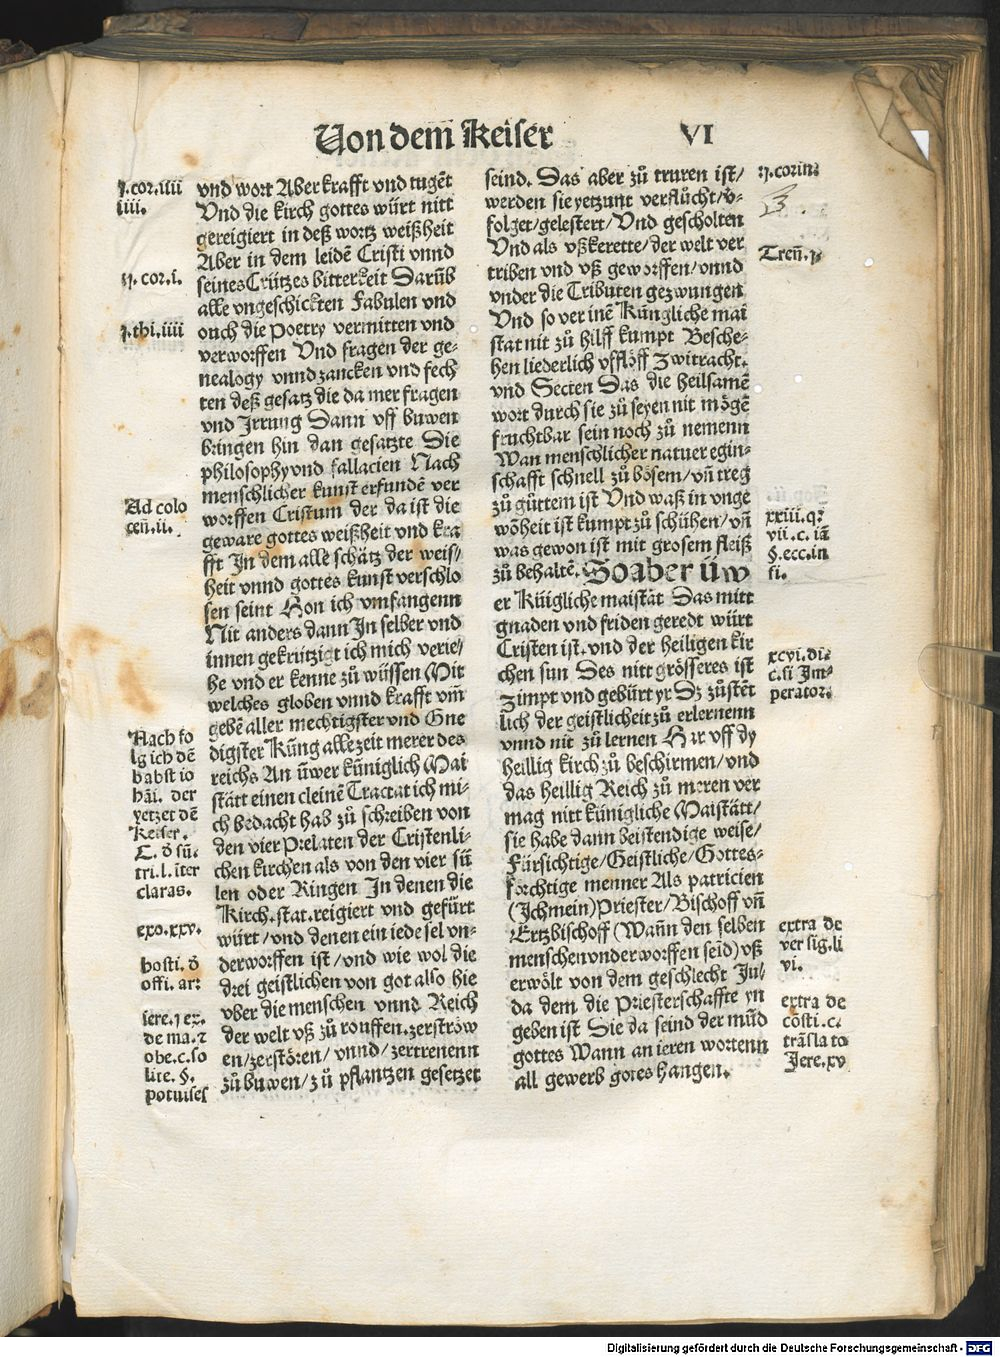 Von dem̄ Keiser
VI
ꝛ. cor. iiii
iiii.
ij. cor. i.
ꝛ. thi. iiii
Ad colo
cen̄. ii.
Nach fo
lg ich dē
babst io
hāi. der
yetzet dē
Keiser.
C. ð sū.
tri. l. iter
claras.
exo. xxv.
hosti. ð
offi. ar:
iere. ꝛ ex.
de ma. ꝛ
obe. c. so
lite. §.
potuisef
vnd wort Aber krafft vnd tugēt
Vnd die kirch gottes würt nitt
gereigiert in deß wortz weißheit
Aber in dem leidē Cristi vnnd
seines Crützes bitterkeit Darūb
alle vngeschickten Fabulen vnd
ouch die Poetry vermitten vnd
verworffen Vnd fragen der ge⸗
nealogy vnnd zancken vnd fech
ten deß gesatz die da mer fragen
vnd Irrung Dann vff buwen
bringen hin dan gesatzte Die
philosophy vnd fallacien Nach
menschlicher kunst erfundē ver
worffen Cristum der da ist die
geware gottes weißheit vnd kra
fft In dem alle schätz der weis/
heit vnnd gottes kunst verschlo
sen seint Hon ich vmfangenn
Nit anders dann In selber vnd
innen gekrützigt ich mich verie/
he vnd er kenne zů wüssen Mit
welches globen vnnd krafft vm̄
gebē aller mechtigster vnd Gne
digster Kūng alle zeit merer des
reichs An üwer küniglich Mai
stätt einen cleinē Tractat ich mi⸗
ch bedacht hab zů schreiben von
den vier Prelaten der Cristenli⸗
chen kirchen als von den vier sü
len oder Ringen In denen die
Kirch. stat. reigiert vnd gefürt
würt/ vnd denen ein iede sel vn⸗
derworffen ist/ vnd wie wol die
drei geistlichen von got also hie
vber die menschen vnnd Reich
der welt vß zů rouffen. zerströw
en/ zerstören/ vnnd/ zertrenenn
zů buwen/ zů pflantzen gesetzet
seind. Das aber zů truren ist/
werden sie yetzunt verflücht/ ð⸗
folget/ gelestert/ Vnd gescholten
Vnd als vßkerette/ der welt ver
triben vnd vß geworffen/ vnnd
vnder die Tributen gezwungen
Vnd so ver inē Küngliche mai
stat nit zů hilff kumpt Besche⸗
hen liederlich vfflöff Zwitracht.
vnd Secten Das die heilsamē
wort durch sie zů seyen nit mögē
fruchtbar sein noch zů nemenn
Wan menschlicher natuer egin⸗
schafft schnell zů bösem/ vn̄ treg
zů güttem ist Vnd waß in vnge
wōheit ist kumpt zů schühen/ vn̄
was gewon ist mit grosem fleiß
zů behaltē. So aber üw
er Küigliche maistät Das mitt
gnaden vnd friden geredt würt
Cristen ist. vnd der heiligen kir
chen sun Des nitt grösseres ist
Zimpt vnd gebürt yr Dz zůstēt
lich der geistlicheit zů erlernenn
vnnd nit zů lernen Har vff dy
heillig kirch zů beschirmen/ vnd
das heillig Reich zů meren ver
mag nitt künigliche Maistätt/
sie habe dann beistendige weise/
Fürsichtige/ Geistliche/ Gottes⸗
förchtige menner Als patricien
(Ich mein) Priester/ Bischoff vn̄
Ertzbischoff (Wan̄n den selben
menschen vnderworffen seid) vß
erwölt von dem geschlecht Ju/
da dem die Priesterschaffte yn
geben ist Sie da seind der mūd
gottes Wann an ieren wortenn
all gewerb gotes hangen.
ij. corin.
3.
Tren̄.
xxiii. q.
vii. c. iā
§. ecc. in
fi.
xcvi. di.
c. si Im⸗
perator.
extra de
ver sig. li
vi.
extra de
cōsti. c.
trāsla to
Jere. xv
Digitalisierung gefördert durch die Deutsche Forschungsgemeinschaft - DFG